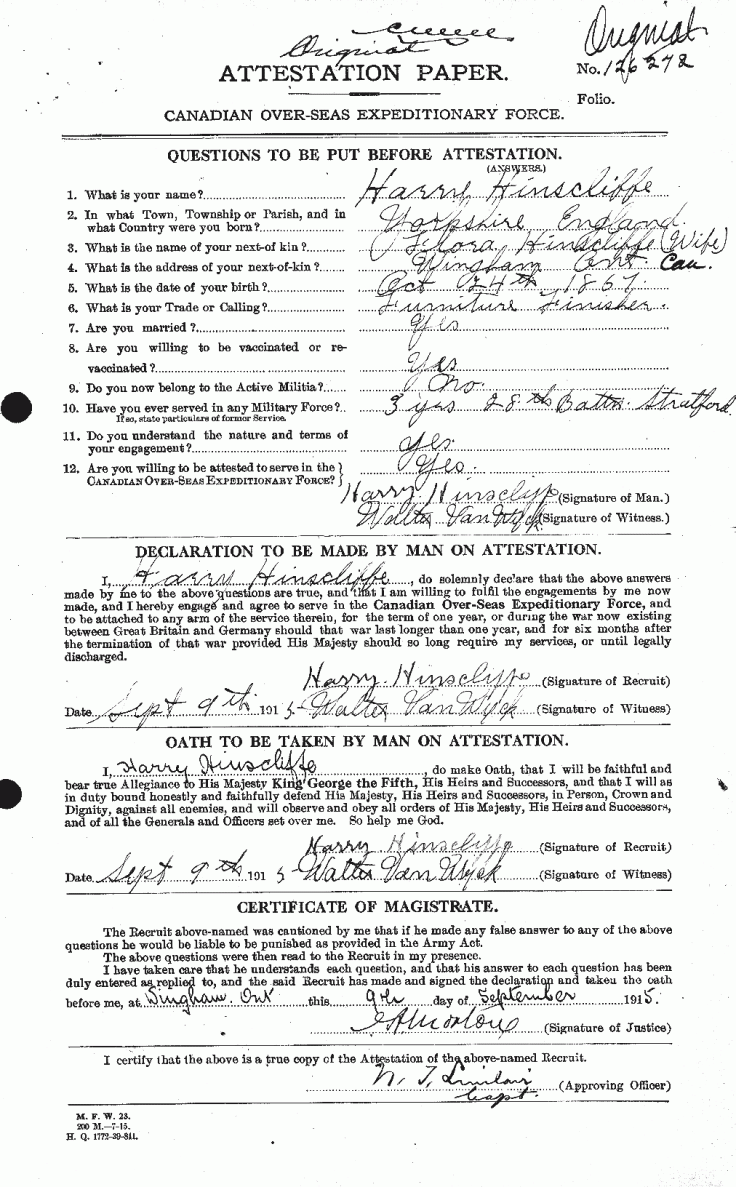 Original
Original
ATTESTATION PAPER.
No. 126272
Folio.
CANADIAN OVER-SEAS EXPEDITIONARY FORCE.
QUESTIONS TO BE PUT BEFORE ATTESTATION.
(ANSWERS.)
1. What is your name? Harry Hinscliffe
2. In what Town, Township or Parish, and in
what Country were you born? Yorpshire, England
3. What is the name of your next-of kin? Flora Hinscliffe (Wife)
4. What is the address of your next-of-kin? Wingham Ont Can.
5. What is the date of your birth? Oct 24th 1867.
6. What is your Trade or Calling? Furniture Finisher.
7. Are you married? Yes
8. Are you willing to be vaccinated or re-
vaccinated? Yes
9. Do you now belong to the Active Militia? No.
10. Have you ever served in any Military Force? 3 yrs 28th Battn. Stratford
If so, state particulars of former Service.
11. Do you understand the nature and terms of
your engagement? Yes.
12. Are you willing to be attested to serve in the } Yes.
CANADIAN OVER-SEAS EXPEDITIONARY FORCE? }
Harry Hinscliffe (Signature of Man.)
Walter VanWyck (Signature of Witness.)
DECLARATION TO BE MADE BY MAN ON ATTESTATION.
I, Harry Hinscliffe, do solemnly declare that the above answers
made by me to the above questions are true, and that I am willing to fulfil the engagements by me now
made, and I hereby engage and agree to serve in the Canadian Over-Seas Expeditionary Force, and
to be attached to any arm of the service therein, for the term of one year, or during the war now existing
between Great Britain and Germany should that war last longer than one year, and for six months after
the termination of that war provided His Majesty should so long require my services, or until legally
discharged.
Harry Hinscliffe (Signature of Recruit)
Date Sept 9th 1915 Walter VanWyck (Signature of Witness)
OATH TO BE TAKEN BY MAN ON ATTESTATION.
I, Harry Hinscliffe, do make Oath, that I will be faithful and
bear true Allegiance to His Majesty King George the Fifth, His Heirs and Successors, and that I will as
in duty bound honestly and faithfully defend His Majesty, His Heirs and Successors, in Person, Crown and
Dignity, against all enemies, and will observe and obey all orders of His Majesty, His Heirs and Successors,
and of all the Generals and Officers set over me. So help me God.
Harry Hinscliffe (Signature of Recruit)
Date Sept 9th 1915 Walter VanWyck (Signature of Witness)
CERTIFICATE OF MAGISTRATE.
The Recruit above-named was cautioned by me that if he made any false answer to any of the above
questions he would be liable to be punished as provided in the Army Act.
The above questions were then read to the Recruit in my presence.
I have taken care that he understands each question, and that his answer to each question has been
duly entered as replied to, and the said Recruit has made and signed the declaration and taken the oath
before me, at Wingham. Ont this 9th day of September 1915.
(Signature of Justice)
I certify that the above is a true copy of the Attestation of the above-named Recruit.
(Approving Officer)
Capt.
M. F. W. 23.
200 M.—7-15.
H. Q. 1772-39-841.